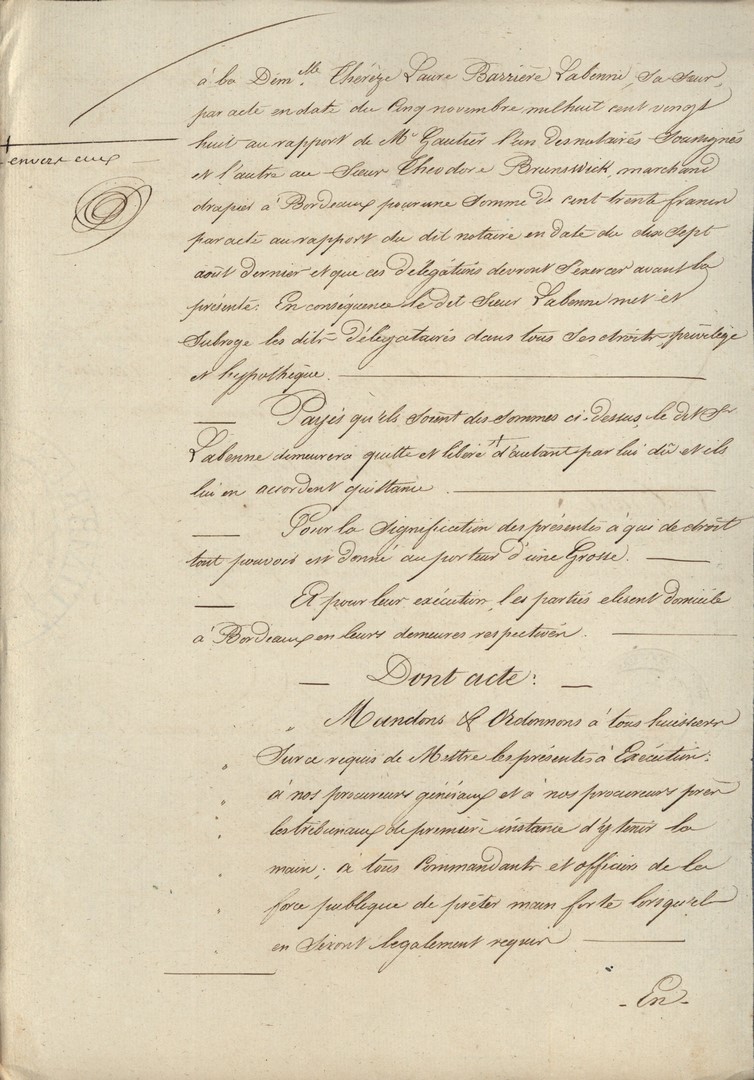 à la Dem.lle Thérèze Laure Barrière Labenne, Sa Sœur,
par acte en date du Cinq novembre mil huit cent vingt
huit au rapport de Me Gautier l'un des notaires Soussignés
+
envers eux
et l'autre au Sieur Théodore Brunswick, marchand
drapier à Bordeaux pour une Somme de cent trente francs
par acte au rapport du dit notaire en date du dix Sept
août dernier et que ces délégations devront S'exercer avant la
présente. En conséquence le dit Sieur Labenne met et
Subroge les dits délégataires dans tous Ses droits, privilège
et hypothèque.
Payés qu'ils Soient des Sommes ci-dessus, le dit Sr
Labenne demeurera quitte et libéré + d'autant par lui dû et ils
lui en accordent quittance.
Pour la Signification des présentes à qui de droit
tout pouvoir est donné au porteur d'une Grosse.
Et pour leur exécution, les parties elisent domicile
à Bordeaux en leurs demeures respectives.
Dont acte:
Mandons & Ordonnons à tous huissiers
Sur ce requis de Mettre les présentes à Exécution:
à nos procureurs généraux et à nos procureurs près
les tribunaux de première instance d'y tenir la
main; à tous Commandants et officiers de la
force publique de prêter main forte lorsqu'ils
en Seront légalement requis
- En -